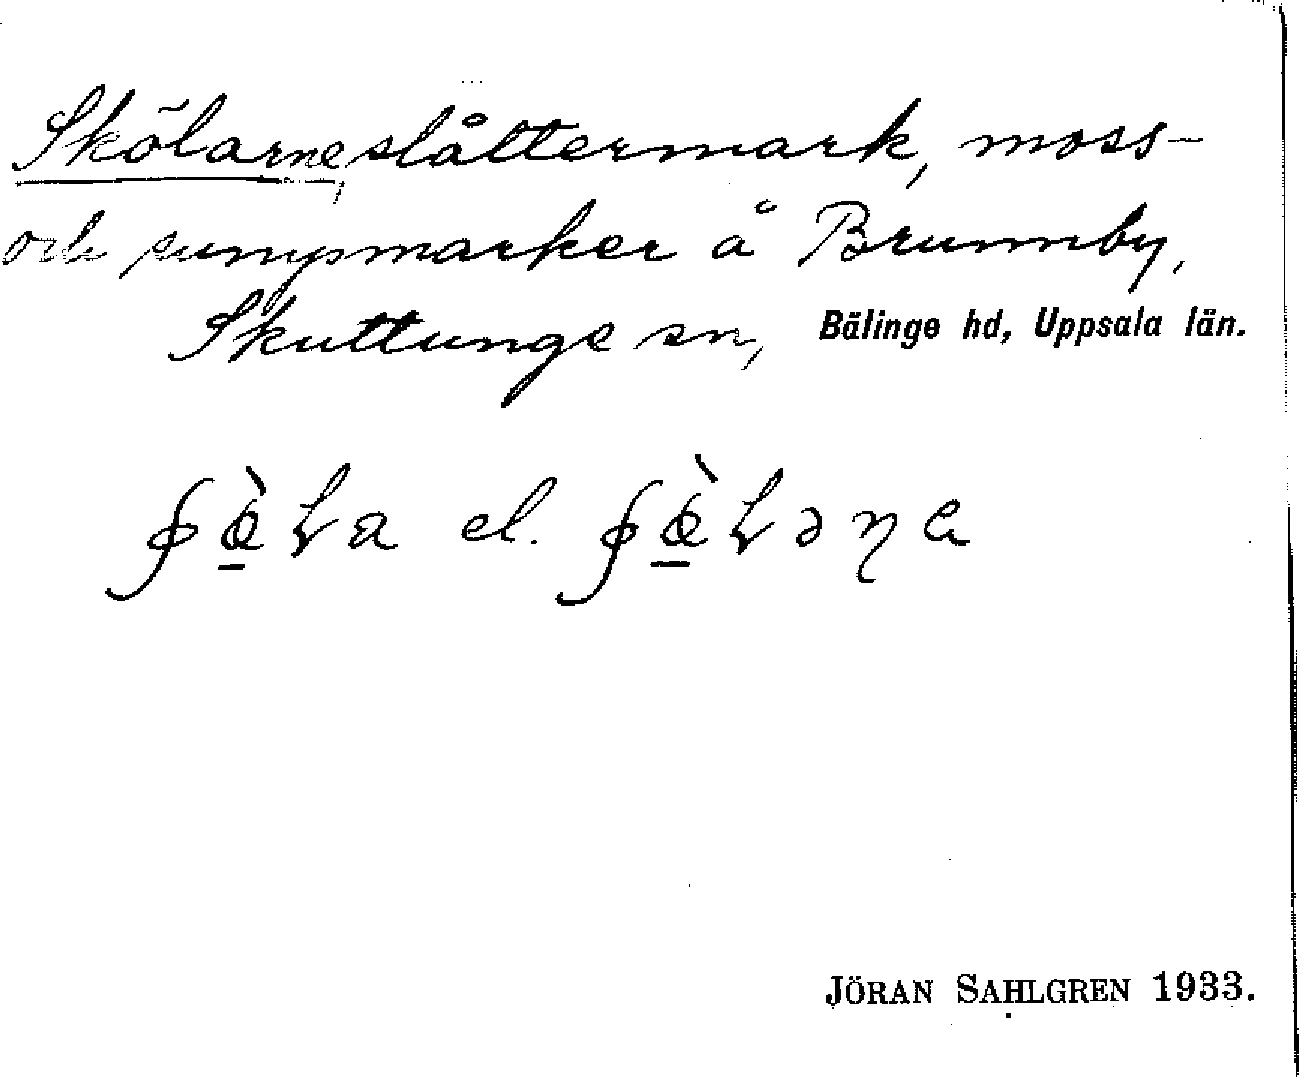 Skölarne, slåttermark, moss-
och sumpmarker å Brunnby,
Skuttunge sn, Bälinge hd, Uppsala län.
el.
JÖRAN SAHLGREN 1933.